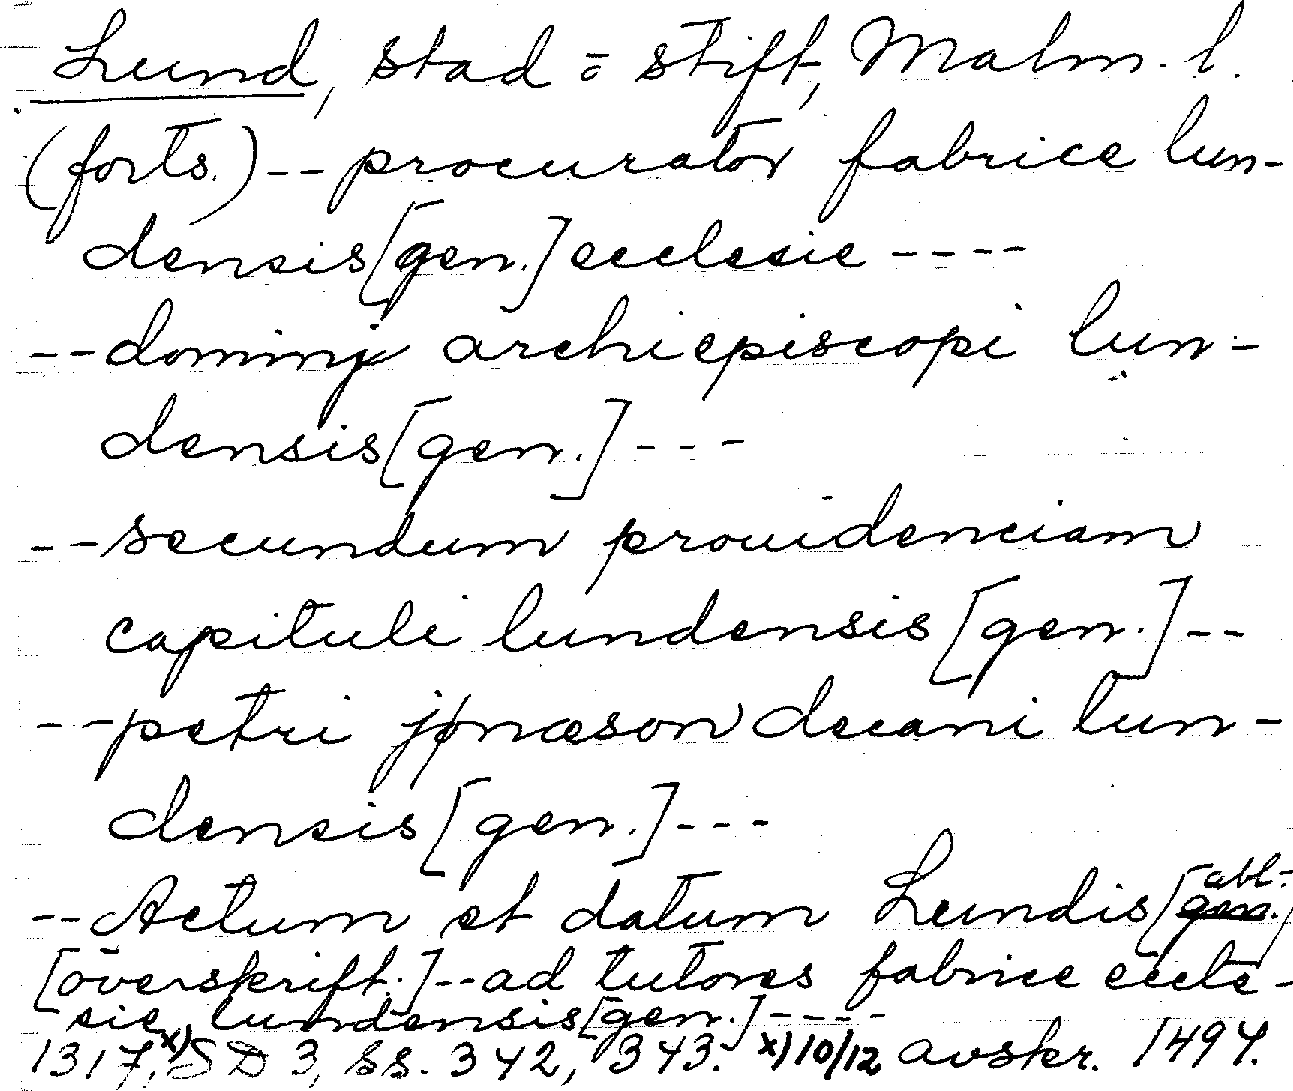 Lund, stad o stift, Malm. l.
(forts.) -- procurator fabrice lun-
densis [gen.] ecclesie ----
-- dominj archiepiscopi lun-
densis [gen.] ---
-- secundum prouidenciam
capituli lundensis [gen.] --
-- petri jonæson decani lun-
densis [gen.] ---
-- Actum et datum Lundis [abl.]
[överskrift:] -- ad tutores fabrice eccle-
sie lundensis [gen.] ----
1317,x) SD 3, ss. 342, 343. x) 10/12 avskr. 1494.